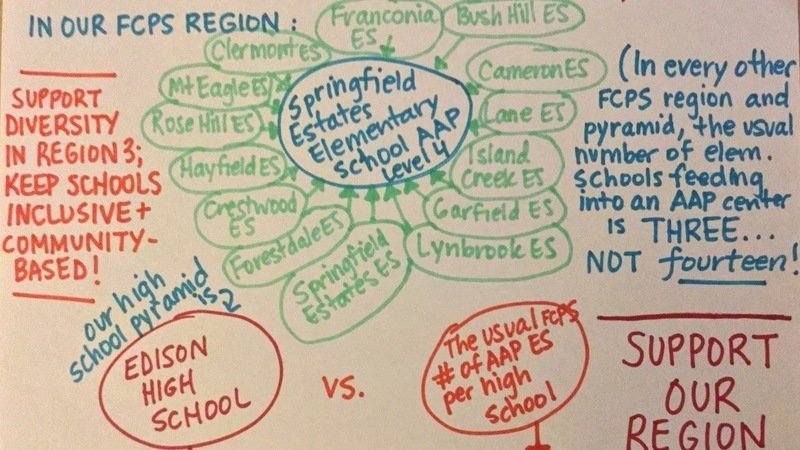 IN OUR FCPS REGION:
SUPPORT
DIVERSITY
IN REGION 3;
KEEP SCHOOLS
INCLUSIVE +
COMMUNITY-
BASED!
Franconia
ES
Bush Hill ES
Clermont ES
Mt Eagle ES
Rose Hill ES
Hayfield ES
Crestwood
ES
Forestdale ES
Springfield
Estates ES
Springfield
Estates
Elementary
School AAP
Level 4
Cameron ES
Lane ES
Island
Creek ES
Garfield ES
Lynbrook ES
(In every other
FCPS region and
pyramid, the usual
number of elem.
schools feeding
into an AAP center
is THREE...
NOT fourteen!
our high
school pyramid
is
EDISON
HIGH
SCHOOL
vs.
The usual FCPS
# of AAP ES
per high
school
SUPPORT
OUR
REGION